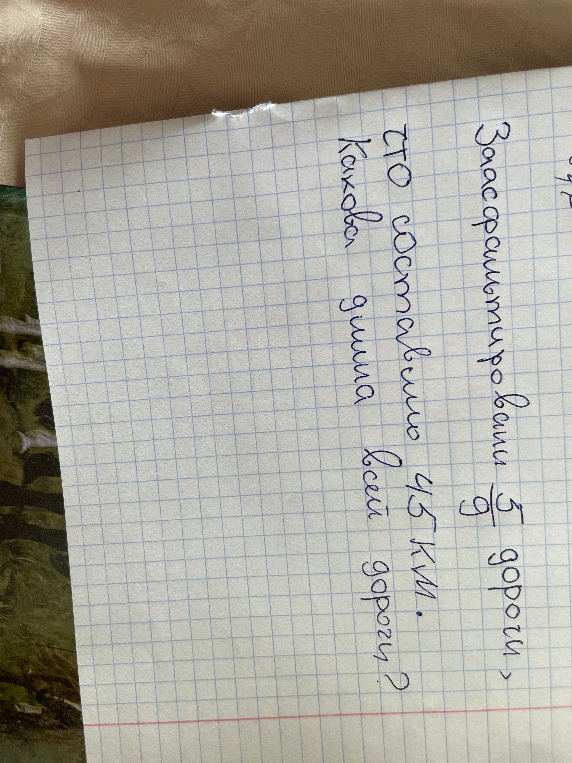 Заасфальтировали 5/9 дороги,
что составило 45 км.
Какова длина всей дороги?